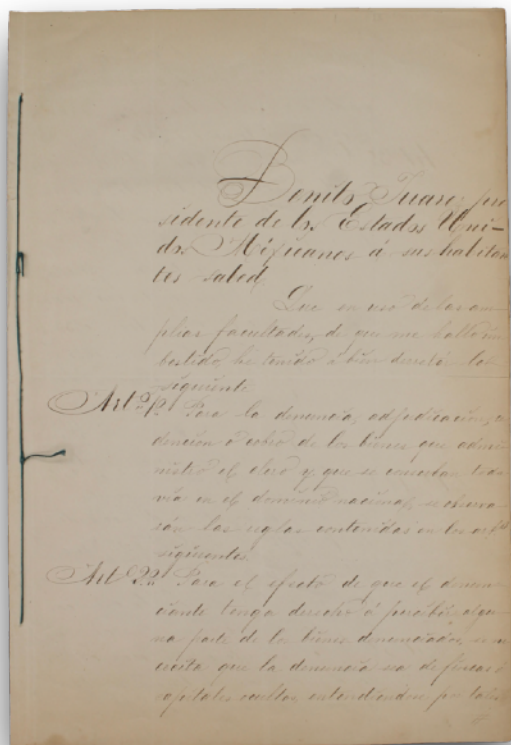 Benito Juarez, pre
sidente de los Estados Uni-
dos Mexicanos á sus habitan
tes sabed
Que en uso de las am
plias facultades, de que me hallo in
bestido, he tenido á bien decretar lo
siguiente
Art.º 1º Para la denuncia, adjudicacion, re
dencion ó cobro de los bienes que admi
nistró el clero y que se conserban toda
via en el dominio nacional, se observa
rán las reglas contenidas en los artos
siguientes
Art.º 2º Para el efecto de que el denun
ciante tenga derecho á percibir algu
na parte de los bienes denunciados, se ne
cesita que la denuncia sea de fincas ó
capitales ocultos, entendiendose por tales